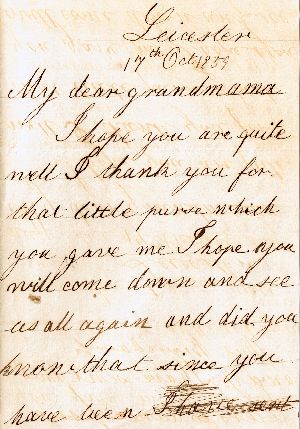 Leicester
17th Oct 1859
My dear grandmama
I hope you are quite
well I thank you for
that little purse which
you gave me I hope you
will come down and see
us all again and did you
know that since you
have been I have sent